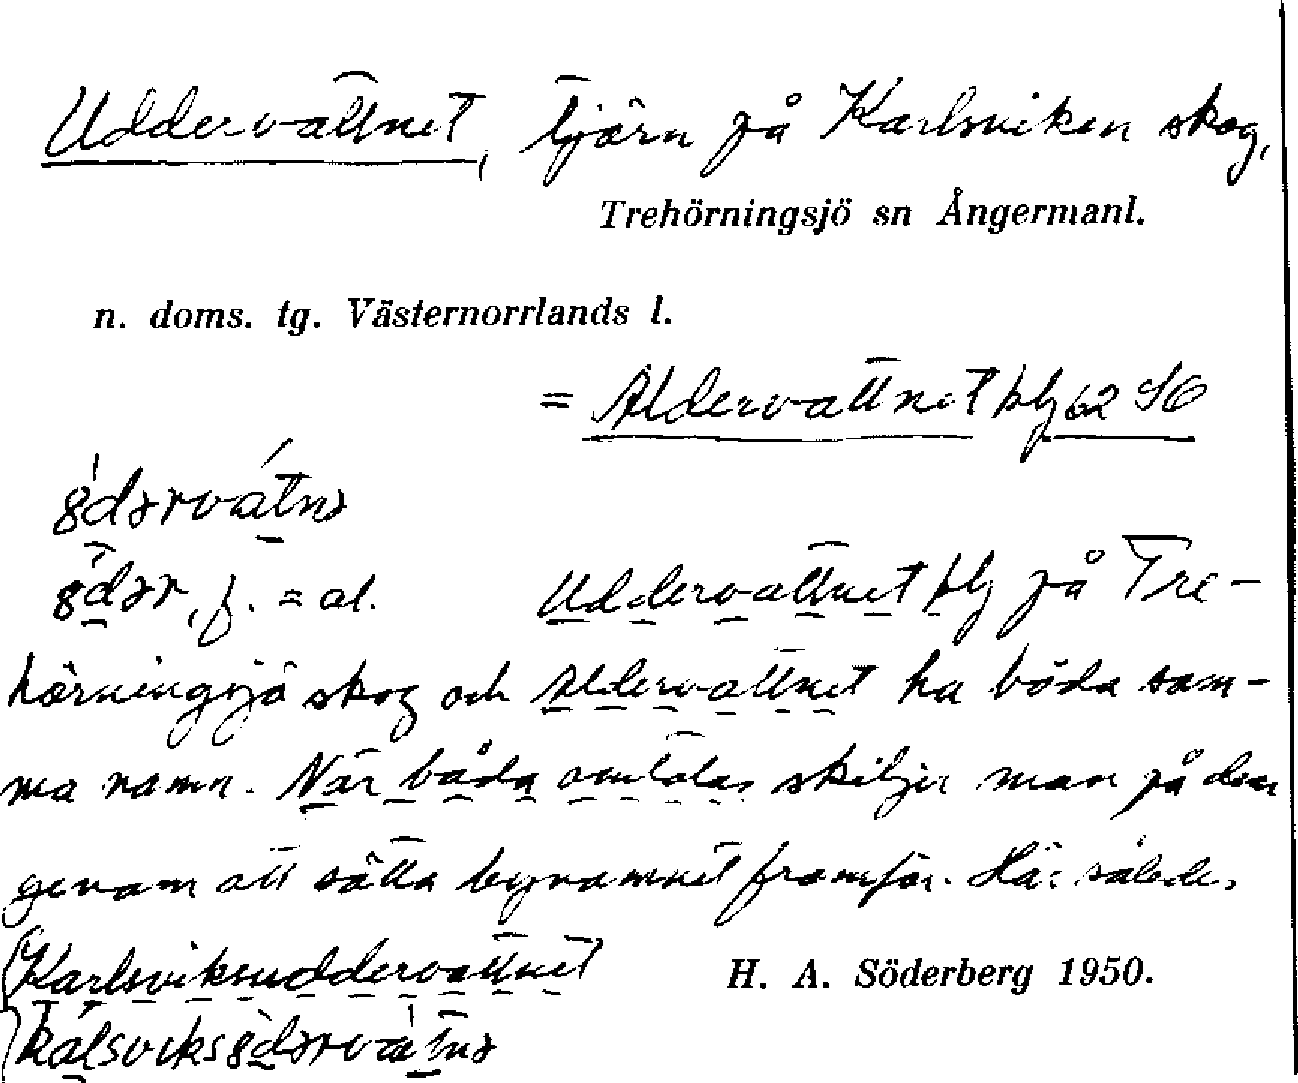 Uddervattnet, tjärn på Karlsviken skog,
Trehörningsjö sn Ångermanl.
n. doms. tg. Västernorrlands l.
= Aldervattnet blg 62 SO
8dərvátnə
8dər, f. = al. Uddervattnet blg på Tre-
hörningsjö skog och Aldervattnet ha båda sam-
ma namn. När båda omtalas skiljer man på dem
genom att sätta bynamnet framför. Här således
Karlsviksuddervattnet
H. A. Söderberg 1950.
kálsviks8dərvátnə